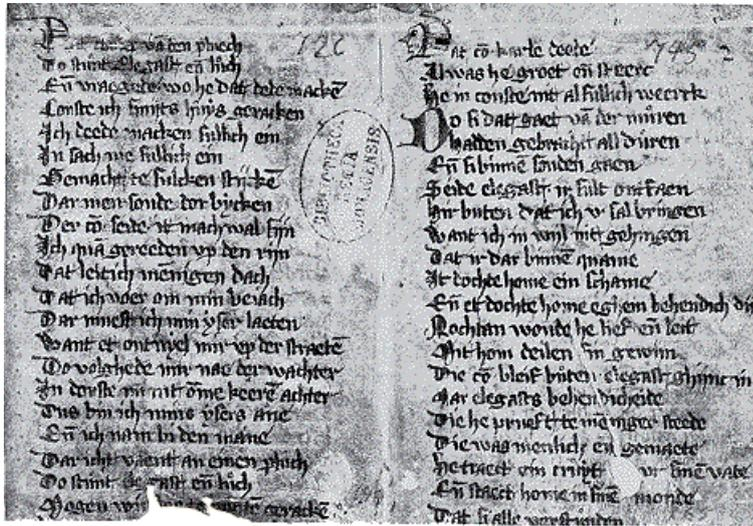 722
va den pluech
Do stunt Elegast eñ luch
Eñ vraegede wo he dat dede mackē
Conste ich huys geracken
Ich deede macken sullich em
In sach nie sullich ein
Gemacht te sulcken stuckē
Dar men soude dor bucken
Der cō seide it mach wal sijn
Ich quā gereeden vp den rijn
Dat leitich mēnigen dach
Dat ich voer om min beiach
Dar muest ich min yser laeten
Want et ontuyel mir vp der straetē
Do volghede mir nae der wachter
In dorste mi nit ōme keerē achter
Dus bin ich mins ysers ane
Eñ ich nam bi den mane
Dar icht vaent an einen pluch
Do stunt elegast eñ luch
Mogen wi geracken
745
Dat cō karle deede
Al was he groet eñ steerc
He in conste nit al sullich weerck
Do si dat gaet vā der mūren
hadden gebracht all dūren
Eñ si binnē souden gaen
Seide elegast ir sult ontfaen
Hir buten dat ich v sal bringen
Want ich in wijl nit gehingen
Dat ir dar binnē quame
It dochte home ein schame
Eñ et dochte home eghem behendich di
Nochtan woude he lief eñ leit
Mit hom deilen sin gewinn
Die cō bleif būten elegast ghinc in
Mar elegasts behendicheite
Die he prueft te mēniger steede
Die was menlich eñ gemaete
he traect ein cruyt
Eñ staect home in sinē monde
Dat hi alle verstunden
BIBLIOTHECA REGIA BEROLINENSIS